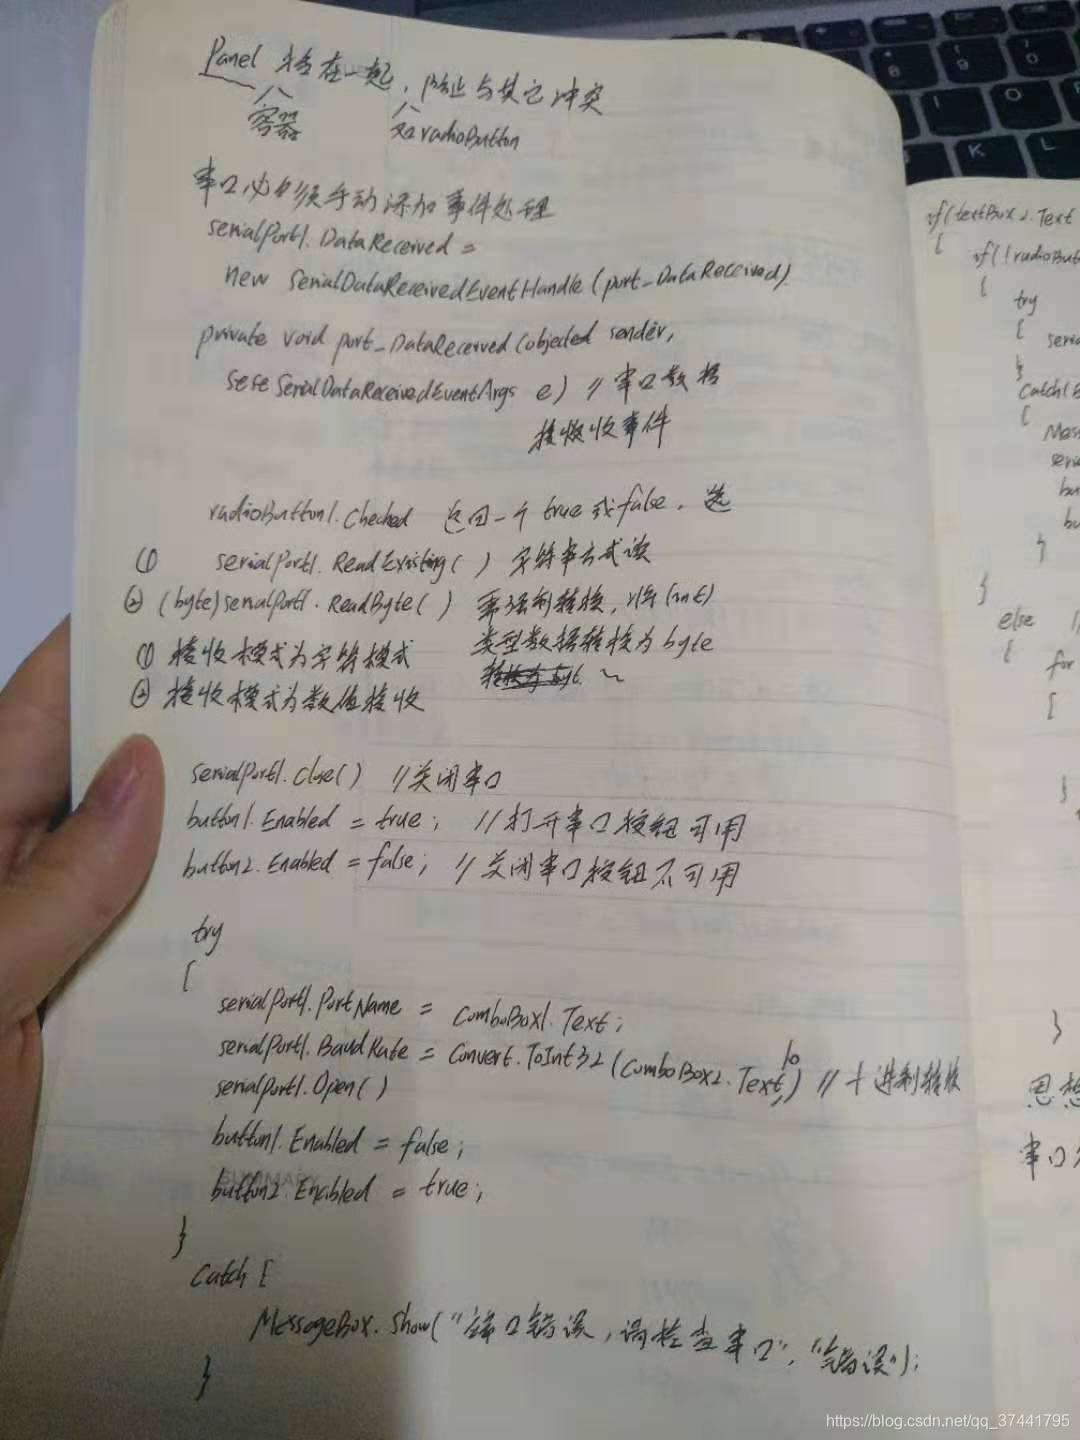 Panel 将合在一起，防止与其它冲突
容器 如radioButton
串口必须手动添加事件处理
serialPort1.DataReceived =
new SerialDataReceivedEventHandle(port_DataReceived)
private void port_DataReceived(objected sender,
SerialDataReceivedEventArgs e) // 串口数据
接收事件
radioButton1.Checked 返回一个 true 或 false，选
① serialPort1.ReadExisting( ) 字符串方式读
② (byte)serialPort1.ReadByte( ) 强制转换，将(int)
类型数据转换为byte
① 接收模式为字符模式
② 接收模式为数值接收
serialPort1.Close( ) //关闭串口
button1.Enabled = true; //打开串口按钮可用
button2.Enabled = false; //关闭串口按钮不可用
try
{
serialPort1.PortName = ComboBox1.Text;
serialPort1.BaudRate = Convert.ToInt32(ComboBox2.Text, 10) //十进制转换
serialPort1.Open( )
button1.Enabled = false;
SUMMARY
button2.Enabled = true;
}
Catch {
MessageBox.Show("端口错误,请检查串口", "错误");
}
if(textBox2.Text
{
if(!radioButt
{
try
{
seria
}
Catch(E
{
Mess
seria
bu
bu
}
}
else //
{
for
{
}
}
思想
串口
https://blog.csdn.net/qq_37441795